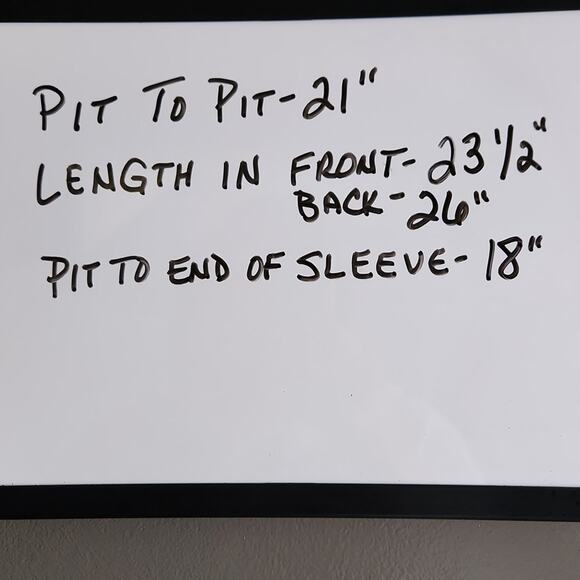 PIT TO PIT-21"
LENGTH IN FRONT- 23 1/2"
BACK- 26"
PIT TO END OF SLEEVE- 18"